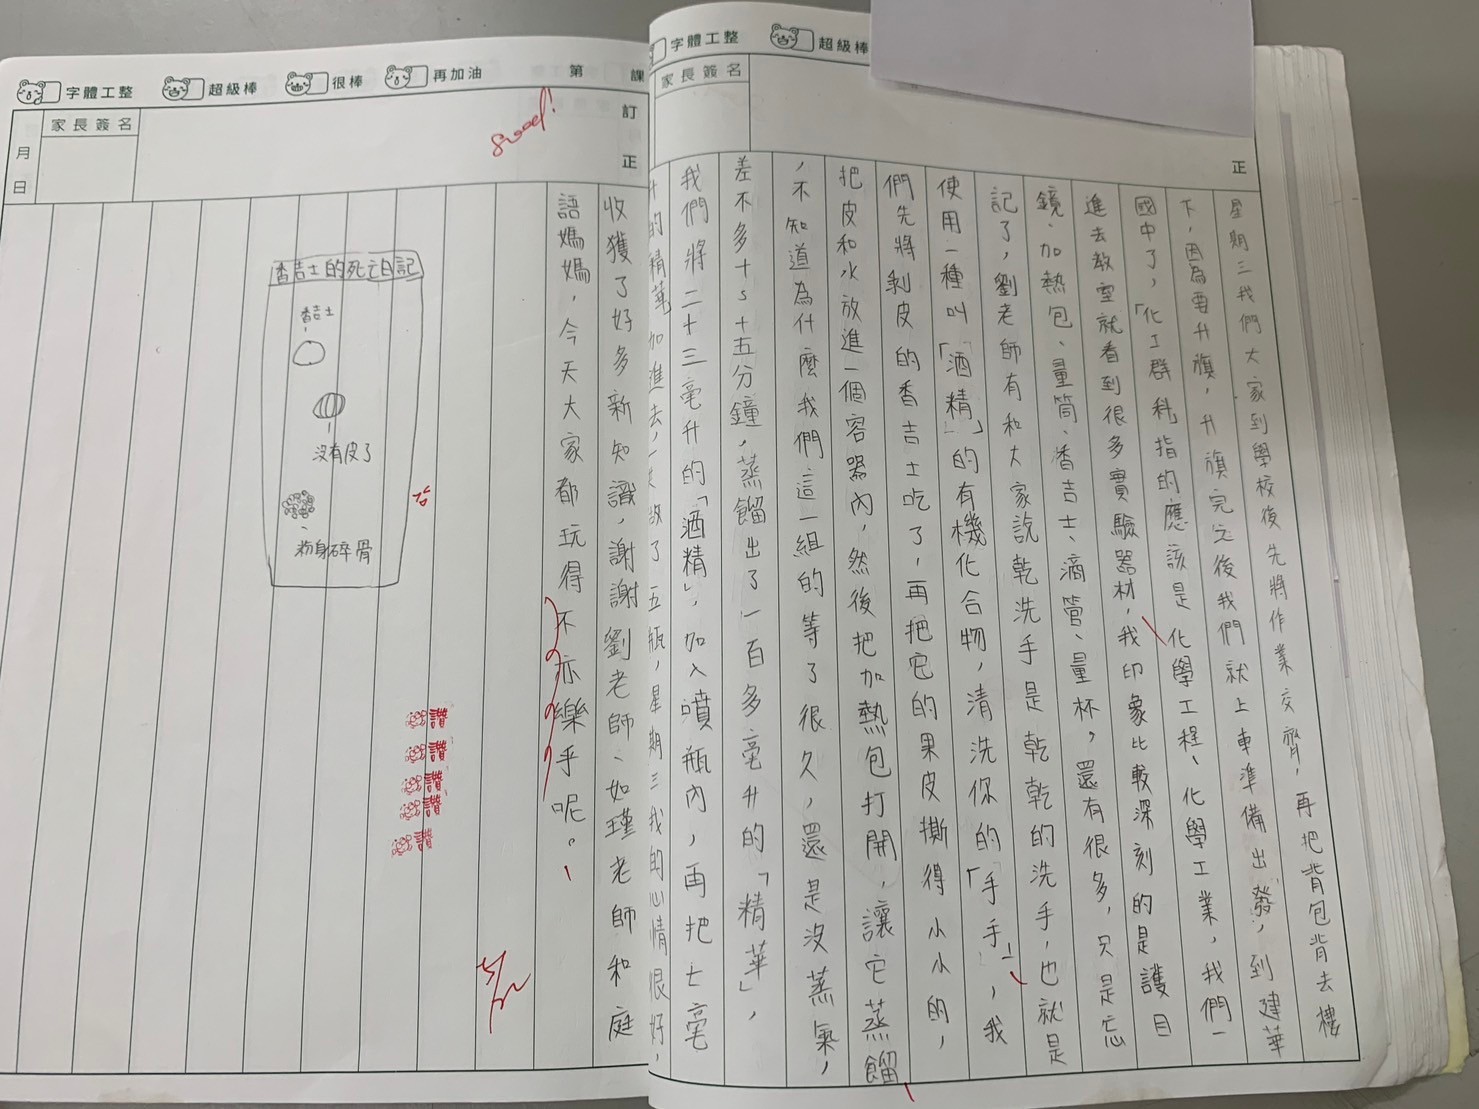 字體工整 超級棒
家長簽名
正
星期三我們大家到學校後先將作業交齊，再把背包背去樓
下，因為要升旗，升旗完之後我們就上車準備出發，到建華
國中了，「化工群科」指的應該是化學工程、化學工業，我們一
進去教室就看到很多實驗器材，我印象比較深刻的是護目
鏡、加熱包、量筒、香吉士、滴管、量杯，還有很多，只是忘
記了，劉老師有和大家說乾洗手是乾乾的洗手，也就是
使用一種叫「酒精」的有機化合物，清洗你的「手手」，我
們先將剝皮的香吉士吃了，再把它的果皮撕得小小的，
把皮和水放進一個容器內，然後把加熱包打開，讓它蒸餾
，不知道為什麼我們這一組的等了很久，還是沒蒸氣，
差不多十s十五分鐘，蒸餾出了一百多毫升的「精華」，
我們將二十三毫升的「酒精」，加入噴瓶內，再把七毫
升的精華加進去，一共做了五瓶，星期三我的心情很好，
字體工整 超級棒 很棒 再加油 第 課
家長簽名
月
日
訂
正
good!
收獲了好多新知識，謝謝劉老師、如瑾老師和庭
語媽媽，今天大家都玩得不亦樂乎呢。
香吉士的死亡日記
香吉士
沒有皮了
粉身碎骨
讚
讚
讚
讚
讚